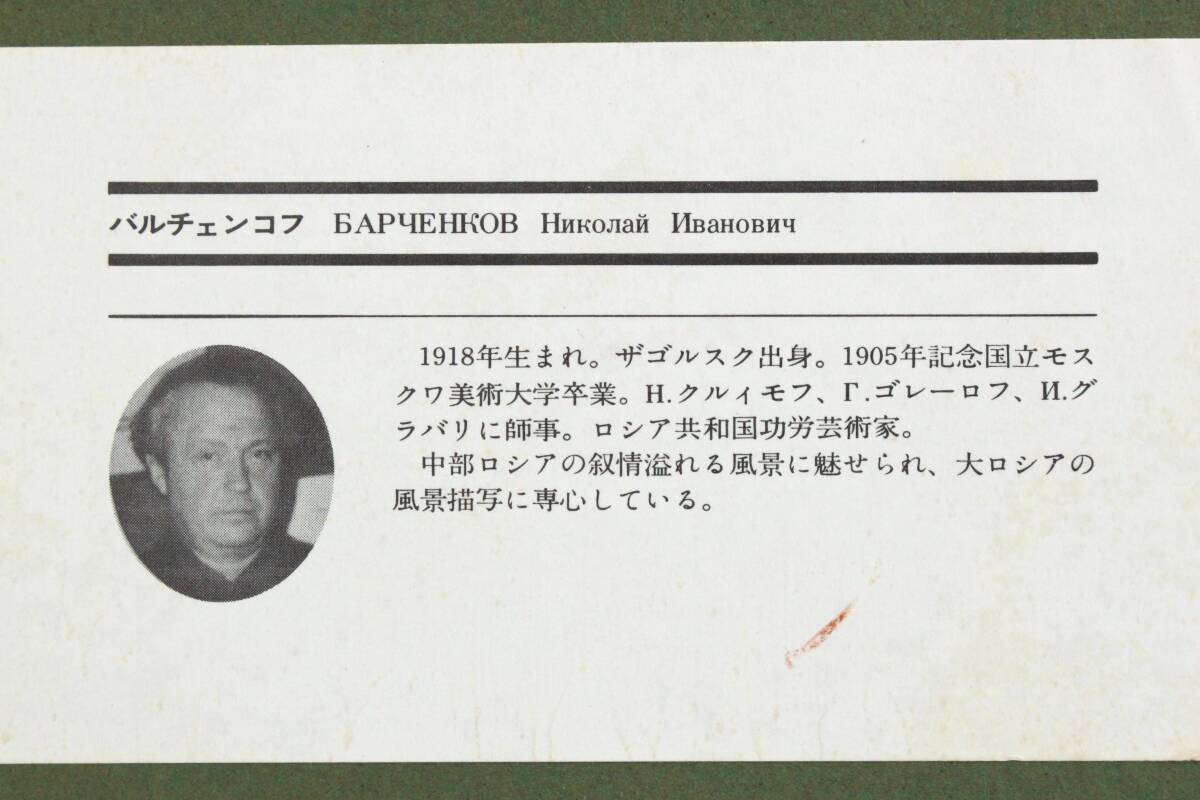 バルチェンコフ БАРЧЕНКОВ Николай Иванович
1918年生まれ。ザゴルスク出身。1905年記念国立モス
クワ美術大学卒業。Н.クルィモフ、Г.ゴレーロフ、И.グ
ラバリに師事。ロシア共和国功労芸術家。
中部ロシアの叙情溢れる風景に魅せられ、大ロシアの
風景描写に専心している。